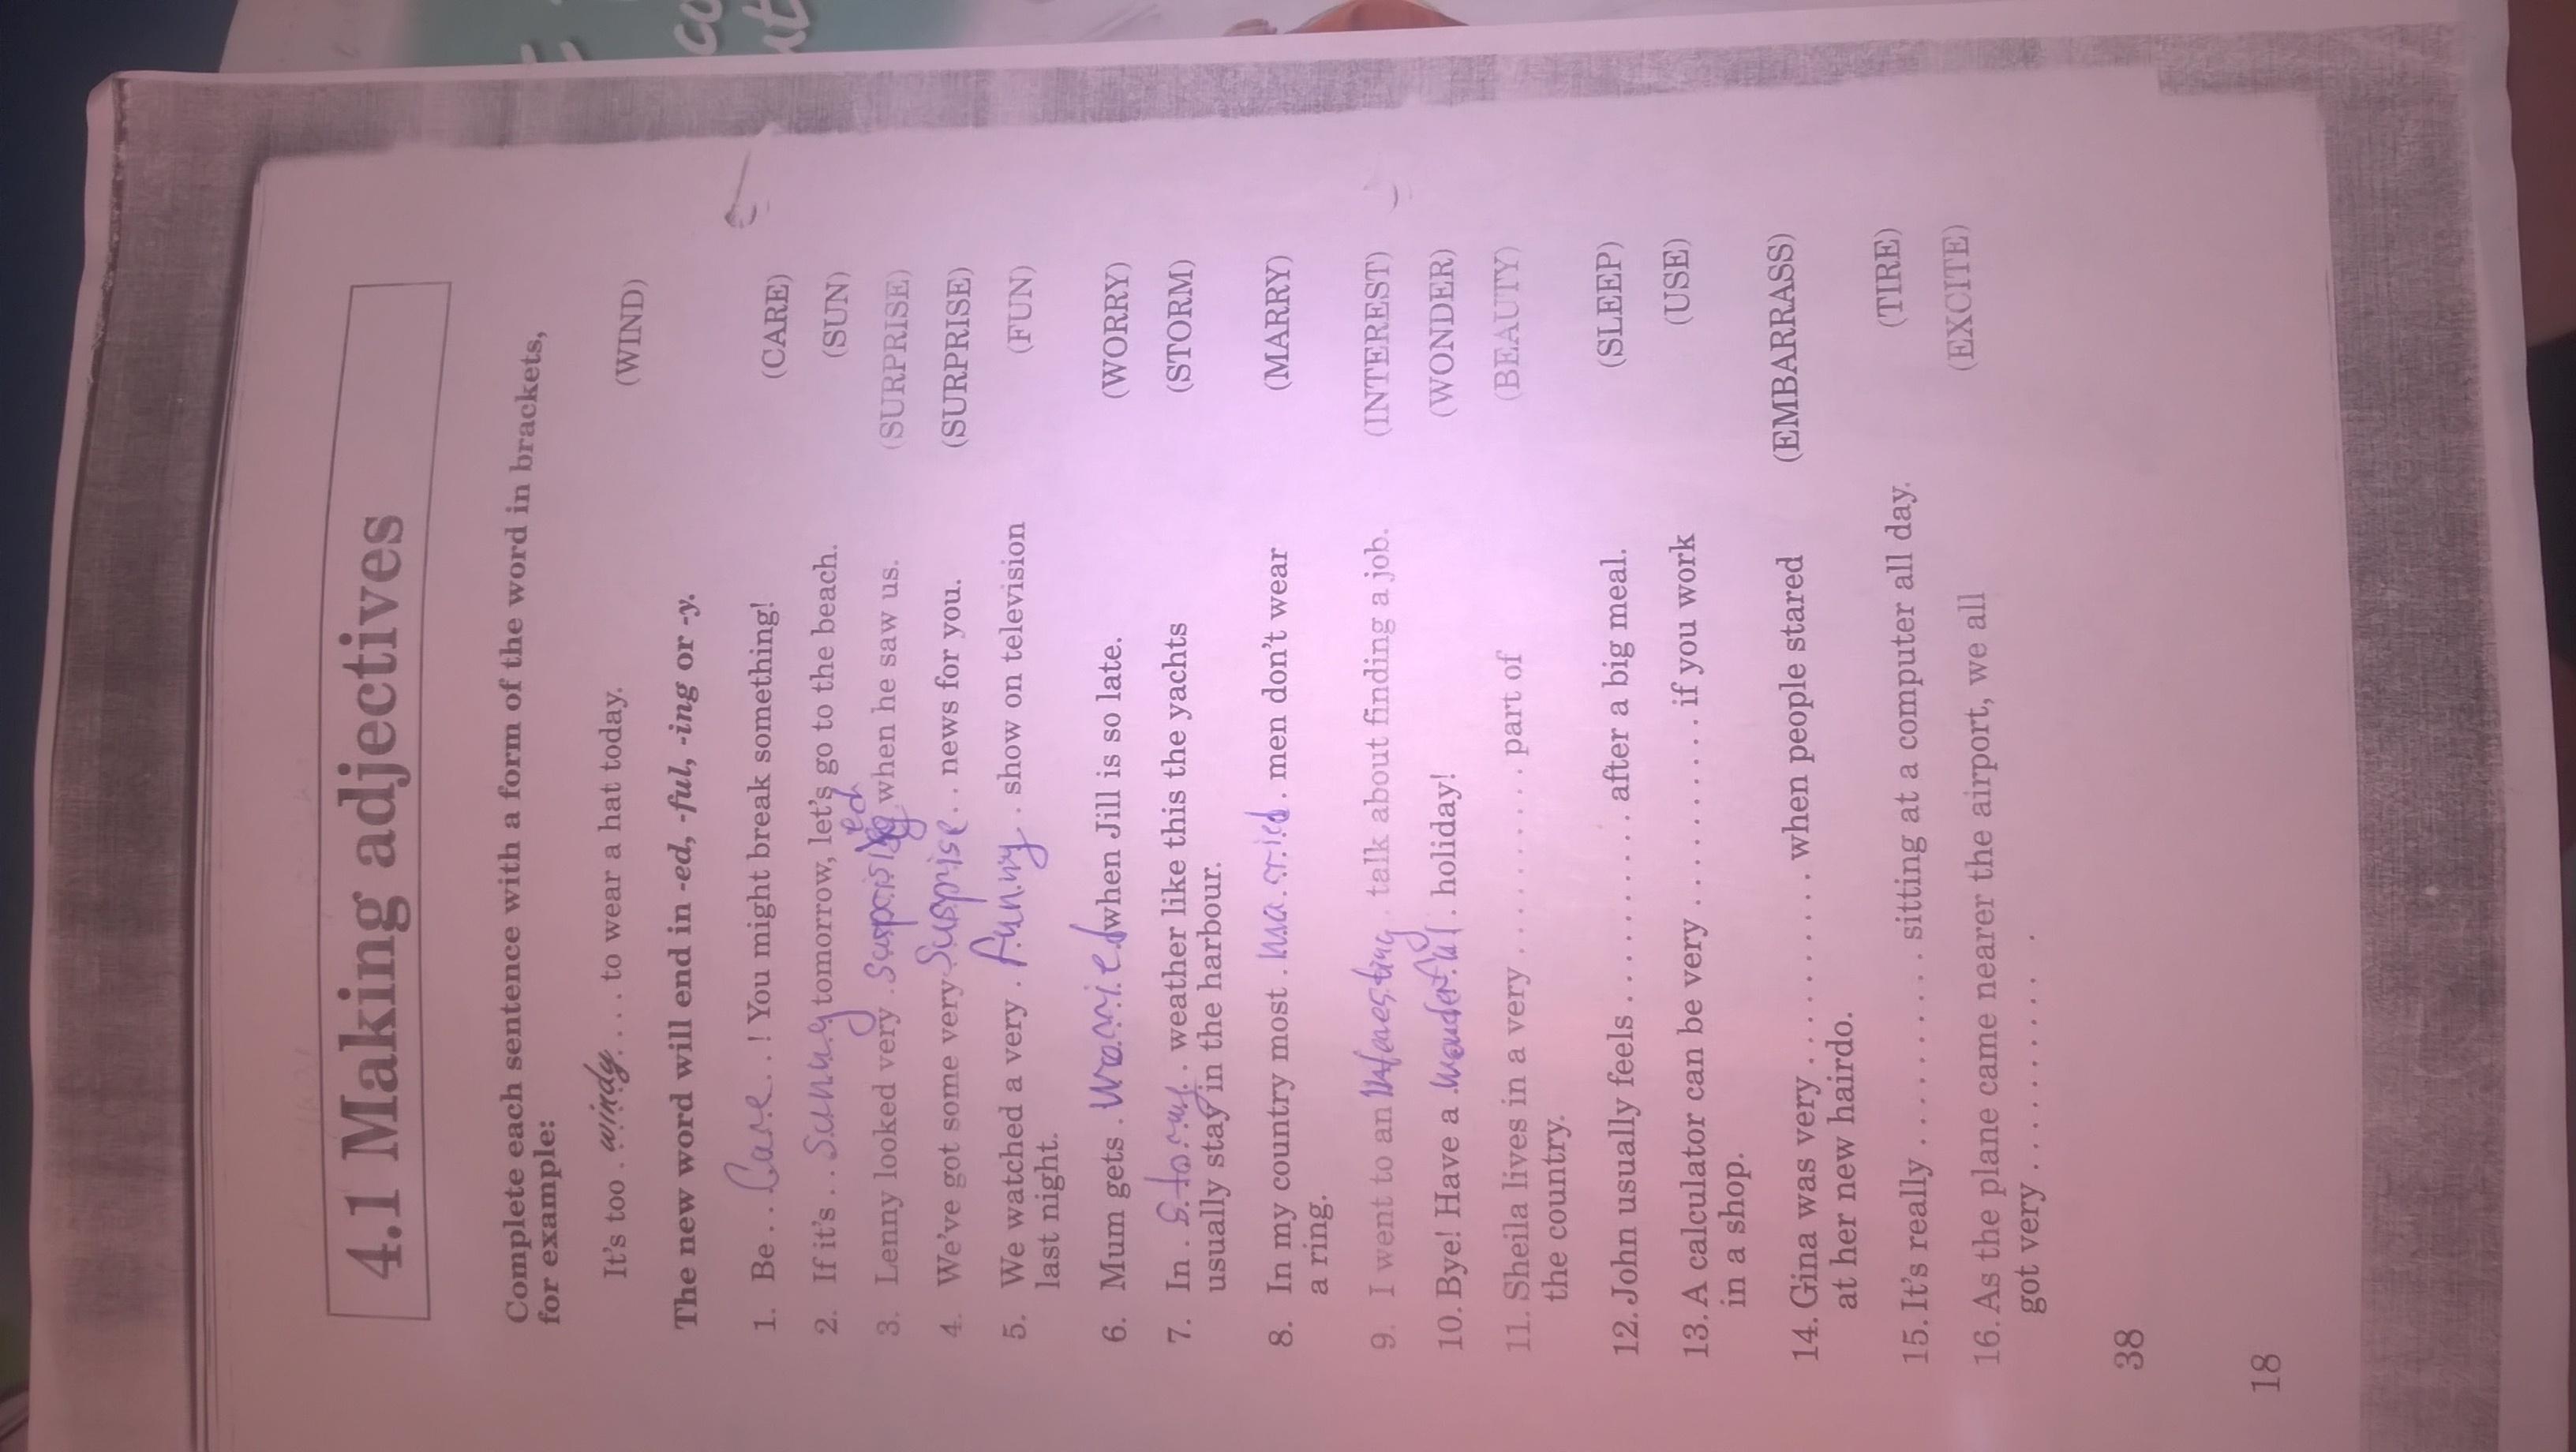 4.1 Making adjectives
Complete each sentence with a form of the word in brackets,
for example:
It's too . windy . . . to wear a hat today. (WIND)
The new word will end in -ed, -ful, -ing or -y.
1. Be . . . Care . . ! You might break something! (CARE)
2. If it's . . Sunny tomorrow, let's go to the beach. (SUN)
3. Lenny looked very . ed when he saw us. (SURPRISE)
4. We've got some very Susprise . . news for you. (SURPRISE)
5. We watched a very . funny . . show on television (FUN)
last night.
6. Mum gets . Worried when Jill is so late. (WORRY)
7. In . Stormy . . weather like this the yachts (STORM)
usually stay in the harbour.
8. In my country most . married . men don't wear (MARRY)
a ring.
9. I went to an talk about finding a job. (INTEREST)
10. Bye! Have a . wonderful . holiday! (WONDER)
11. Sheila lives in a very . . . . . . . . . . part of (BEAUTY)
the country.
12. John usually feels . . . . . . . . . . after a big meal. (SLEEP)
13. A calculator can be very . . . . . . . . . . if you work (USE)
in a shop.
14. Gina was very . . . . . . . . . . when people stared (EMBARRASS)
at her new hairdo.
15. It's really . . . . . . . . . . sitting at a computer all day. (TIRE)
16. As the plane came nearer the airport, we all (EXCITE)
got very . . . . . . . . . . .
38
18